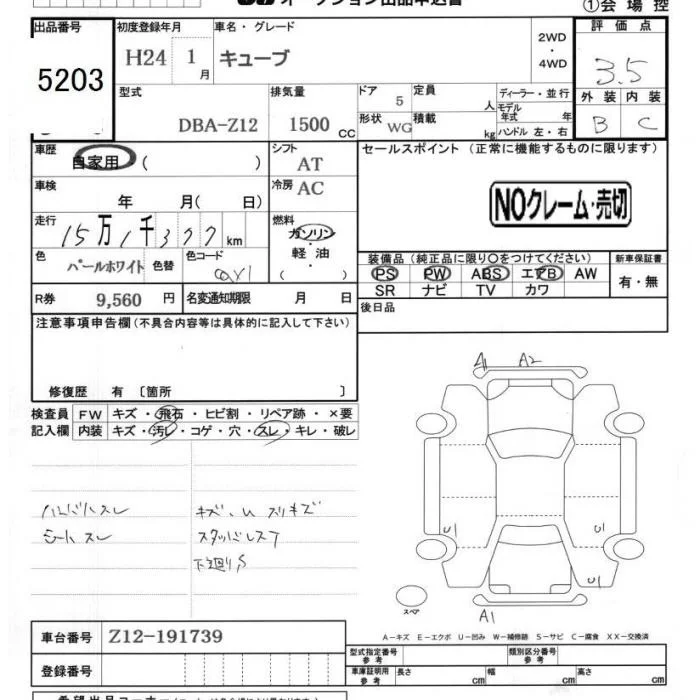 オークション出品申込書
①会場控
出品番号 初度登録年月 車名・グレード 評価点
5203 H24 1月 キューブ 2WD・4WD 3.5
型式 排気量 ドア 定員 ディーラー・並行 外装 内装
DBA-Z12 1500cc 5 人 モデル年式 年 B C
形状 WG 積載 kg ハンドル 左・右
車歴 自家用 ( ) シフト AT セールスポイント (正常に機能するものに限ります)
車検 年 月( 日) 冷房 AC
NOクレーム・売切
走行 15万1千377km 燃料 ガソリン・軽油 ( )
色 パールホワイト 色替 色コード
装備品 (純正品に限り○をつけてください) 新車保証書
PS PW ABS エアB AW 有・無
SR ナビ TV カワ
R券 9,560円 名変通知期限 月 日
後日品
注意事項申告欄 (不具合内容等は具体的に記入して下さい)
修復歴 有 〔箇所 〕
検査員 FW キズ・飛石・ヒビ割・リペア跡・×要
記入欄 内装 キズ・汚レ・コゲ・穴・スレ・キレ・破レ
A A2
ハンドルスレ キズ、U スリキズ
シートスレ スタッドレスT
下廻りS
U1 U1
U1
スペア A1
A-キズ E-エクボ U-凹み W-補修跡 S-サビ C-腐食 XX-交換済
車台番号 Z12-191739
登録番号
型式指定番号 参考 類別区分番号 参考
車庫証明用 参考 長さ cm 幅 cm 高さ cm